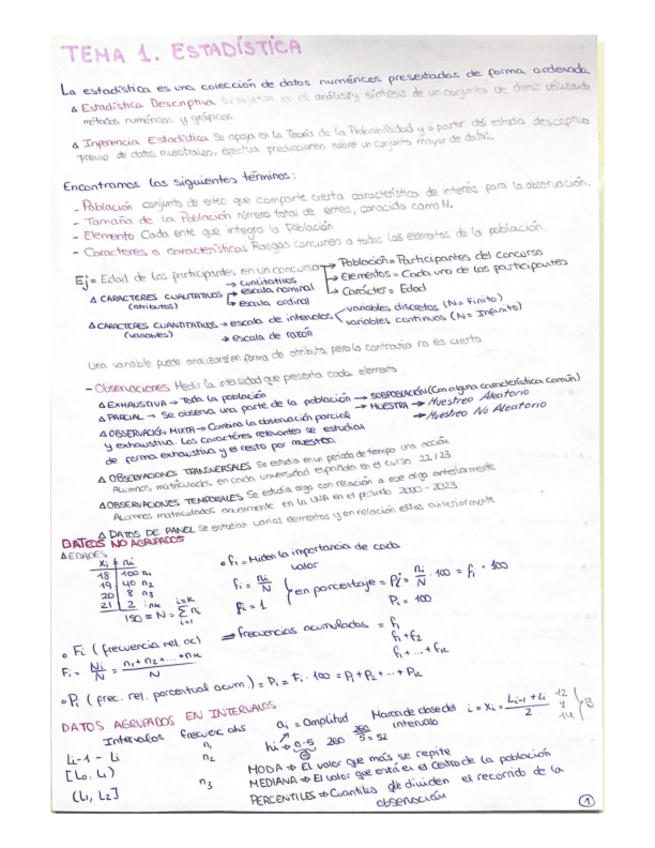 TEMA 1. ESTADÍSTICA
La estadística es una colección de datos numéricos presentados de forma ordenada
Δ Estadística Descriptiva Su objetivo es el análisis y síntesis de un conjunto de datos utilizando
métodos numéricos y gráficos
Δ Inferencia Estadística Se apoya en la Teoría de la Probabilidad y a partir del estudio descriptivo
previo de datos muestrales, efectua predicciones sobre un conjunto mayor de datos.
Encontramos los siguientes términos:
- Población conjunto de entes que comparte cierta característica de interés para la observación.
- Tamaño de la Población número total de entes, conocido como N.
- Elemento Cada ente que integra la Población
- Caracteres o características Rasgos comunes a todos los elementos de la población.
Ej= Edad de los participantes en un concurso → Población = Participantes del concurso
→ Elementos = Cada uno de los participantes
→ Carácter = Edad
Δ CARACTERES CUALITATIVOS → cualitativos
(atributos) → escala nominal
→ escala ordinal
Δ CARACTERES CUANTITATIVOS → escala de intervalos variables discretos (N = Finito)
(variables) variables continuos (N = Infinito)
→ escala de razón
Una variable puede analizarse en forma de atributo pero lo contrario no es cierto
- Observaciones Medir la intensidad que presenta cada elemento
Δ EXHAUSTIVA → Toda la población
Δ PARCIAL → Se observa una parte de la población → SUBPOBLACIÓN (Con alguna característica común)
→ MUESTRA → Muestreo Aleatorio
→ Muestreo No Aleatorio
Δ OBSERVACIÓN MIXTA → Combina la observación parcial
y exhaustiva. Los caracteres relevantes se estudian
de forma exhaustiva y el resto por muestreo
Δ OBSERVACIONES TRANSVERSALES Se estudia en un periodo de tiempo una acción
Alumnos matriculados en cada universidad española en el curso 22/23
Δ OBSERVACIONES TEMPORALES Se estudia algo con relación a ese algo anteriormente
Alumnos matriculados anualmente en la UNA en el periodo 2000-2023
Δ DATOS DE PANEL Se estudian varios elementos y en relación a ellos anteriormente
DATOS NO AGRUPADOS
Δ EDADES
xi | ni
18 | 100 n1
19 | 40 n2
20 | 8 n3
21 | 2 : nk
150 = N = Σ ni i=k i=1
• fi = Miden la importancia de cada
valor
fi = ni/N
fi = 1
en porcentaje = Pi = ni/N · 100 = fi · 100
Pi = 100
• Fi (frecuencia rel. ac) ⇒ frecuencias acumuladas = f1
f1 + f2
f1 + ... + fk
Fi = Ni/N = n1 + n2 + ... + nk / N
• Pi (frec. rel. porcentual acum.) = Pi = Fi · 100 = P1 + P2 + ... + Pk
DATOS AGRUPADOS EN INTERVALOS
Intervalos frecuenc abs
Li-1 - Li n1
[L0, L1) n2
(L1, L2] n3
ai = amplitud
hi → 0-5 260 260/5 = 52
Marca de clase del intervalo i = xi = Li-1 + Li / 2
12 y 14
MODA ⇒ El valor que más se repite
MEDIANA ⇒ El valor que está en el centro de la población
PERCENTILES ⇒ Cuantiles dividen el recorrido de la
observación
1